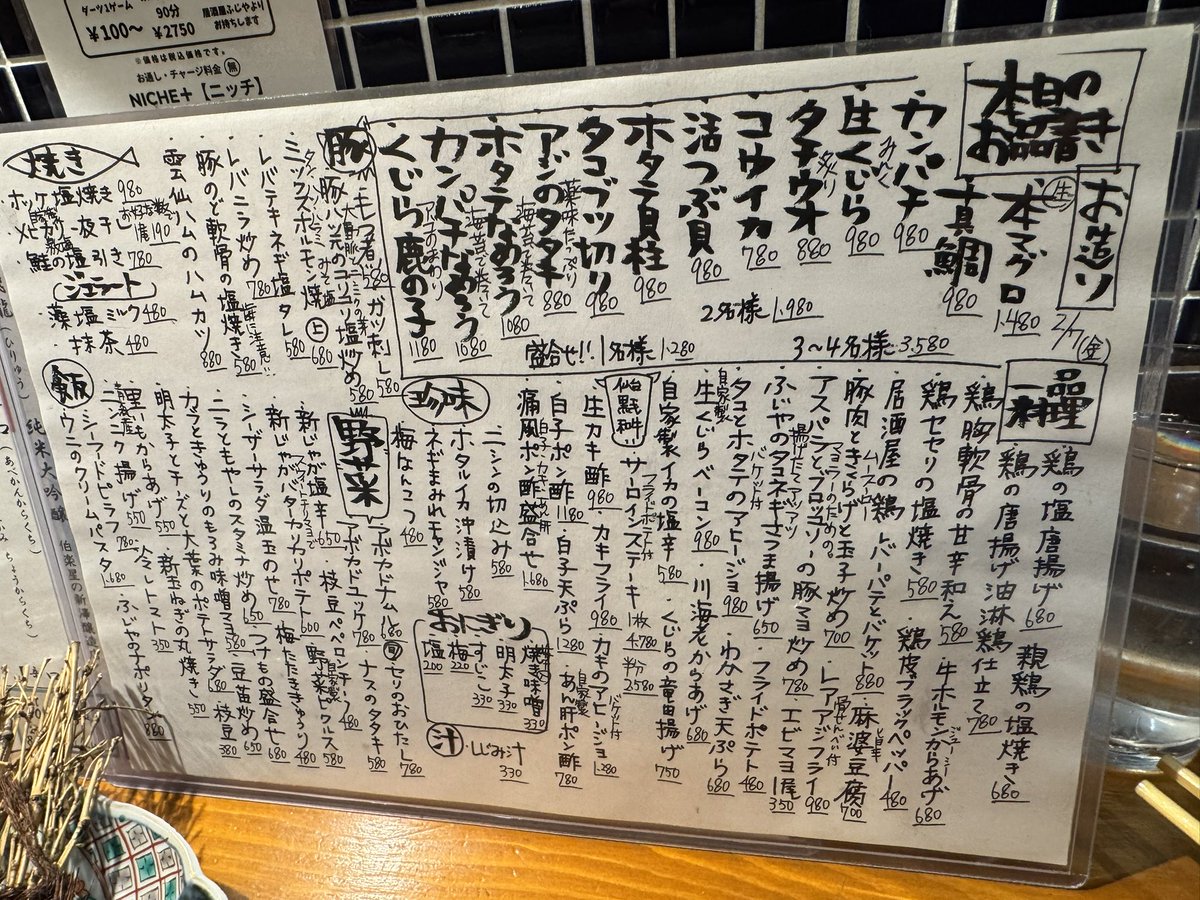 ダーツ1ゲーム
¥100〜
90分
¥2750
居酒屋ふじやより
お持ちします
※価格は税込価格です。
お通し・チャージ料金 無
NICHE+【ニッチ】
本日の
お品書き
お造り
2/7(金)
生 本マグロ 1.480
真鯛 980
カンパチ 980
生くじら 980
タチウオ 炙り 880
コウイカ 980
活つぶ貝 980
ホタテ貝柱 980
タコブツ切り 980
アジのタタキ 薬味たっぷり 880
ホタテなめろう 1080
カンパチなめろう 1080
くじら鹿の子 1180
盛合せ!! 1名様 1.280
2名様 1.980
3〜4名様 3.580
一品料理
鶏の塩唐揚げ 680
親鶏の塩焼き 680
鶏の唐揚げ油淋鶏仕立て 780
鶏胸軟骨の甘辛和え 580
牛ホルモンからあげ 680
鶏セセリの塩焼き 580
鶏皮ブラックペッパー 480
居酒屋の鶏レバーパテとバケット 880
麻婆豆腐 700
豚肉ときくらげと玉子炒め 700
レアアジフライ 980
アスパラとブロッコリーの豚マヨ炒め 780
エビマヨ 1尾 350
ふじやのタコネギさつま揚げ 650
フライドポテト 480
タコとホタテのアヒージョ 980
バケット付
わかさぎ天ぷら 680
自家製
生くじらベーコン 980
川海老からあげ 680
自家製イカの塩辛 580
くじらの竜田揚げ 750
仙台黒毛和牛
サーロインステーキ 1枚 4.780
フライドポテト付
2580
生カキ酢 980
カキフライ 980
カキのアヒージョ 1.280
バケット付
白子ポン酢 1180
白子天ぷら 1280
自家製
あん肝ポン酢 780
痛風ポン酢盛合せ 1.680
珍味
ニシンの切込み 580
ホタルイカ沖漬け 580
ネギまみれチャンジャ 580
梅なんこつ 480
おにぎり
焼き味噌 330
明太子 330
すじこ 330
梅 220
塩 200
汁
・しじみ汁 330
野菜
アボカドナムル 680
旬 セリのおひたし 780
アボカドユッケ 780
ナスのタタキ 580
新じゃが塩辛 650
枝豆ペペロンチーノ 480
自家製
野菜ピクルス 580
新じゃがバターカリカリポテト 600
梅たたききゅうり 480
シーザーサラダ温玉のせ 780
つけもの盛合せ 680
ニラともやしのスタミナ炒め 650
豆苗炒め 650
カツラきゅうりのもろみ味噌マヨ 580
枝豆 380
明太子とチーズと大葉のポテトサラダ 680
里いもからあげ 550
新玉ねぎの丸焼き 550
青森県産
ニンニク揚げ 550
冷しトマト 350
飯
シーフードピラフ 780
ふじやのナポリタン 880
ウニのクリームパスタ 1.680
豚
もつ煮
ガツ刺し 580
豚ハツ元のコリコリ塩炒め 580
ミックスホルモン焼 上 680
580
レバテキネギ塩タレ
レバニラ炒め 780
豚のど軟骨の塩焼き 580
歯に注意!!
雲仙ハムのハムカツ 880
焼き
ホッケ塩焼き 980
メヒカリ一夜干し
お好きな数で
1尾 190
鮭の塩引き 780
ジェラート
・藻塩ミルク 480
・抹茶 480
(ひりゅう)
純米大吟醸
(あべかんからくち)
ちょうからくち)